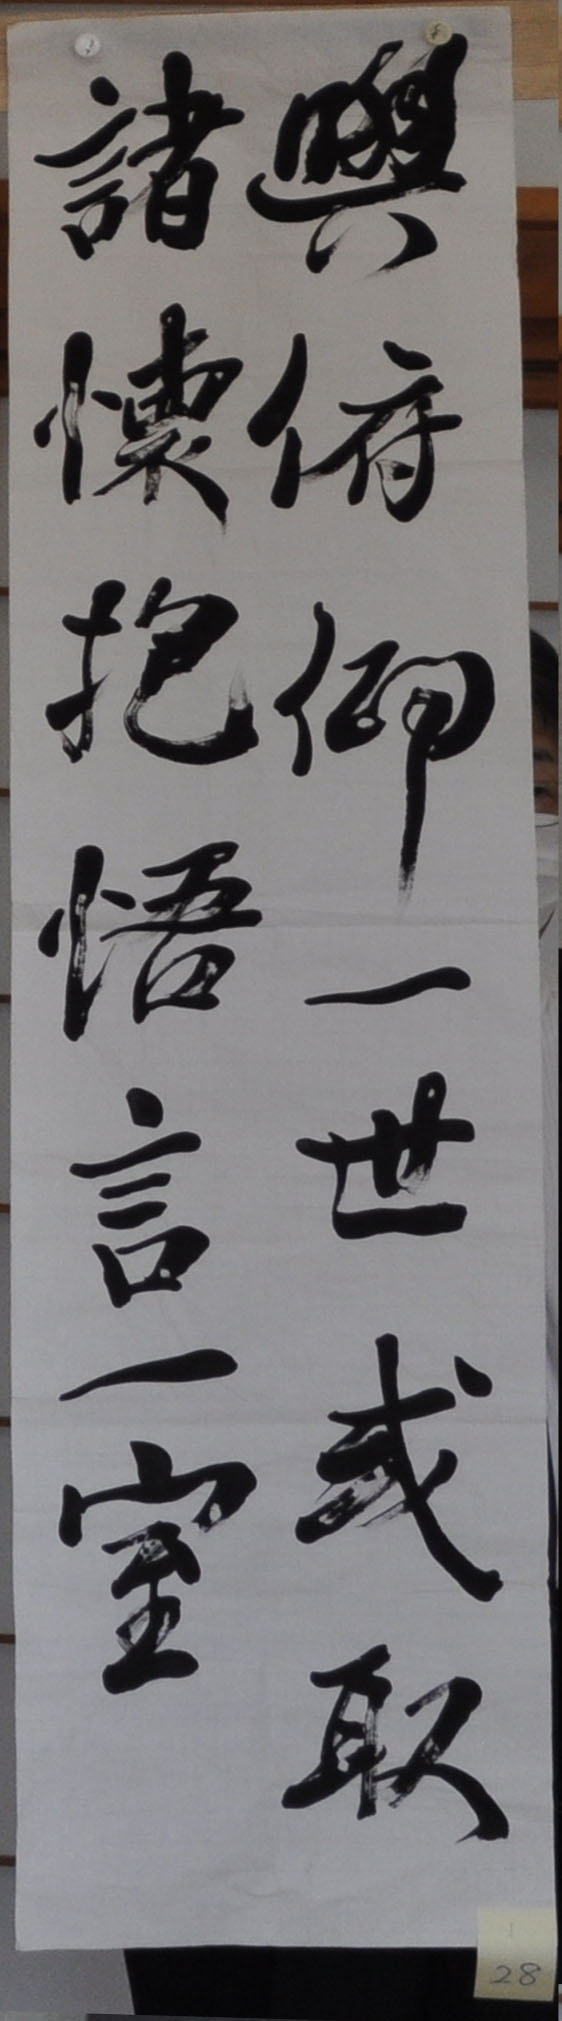 與俯仰一世或取
諸懐抱悟言一室
1
28